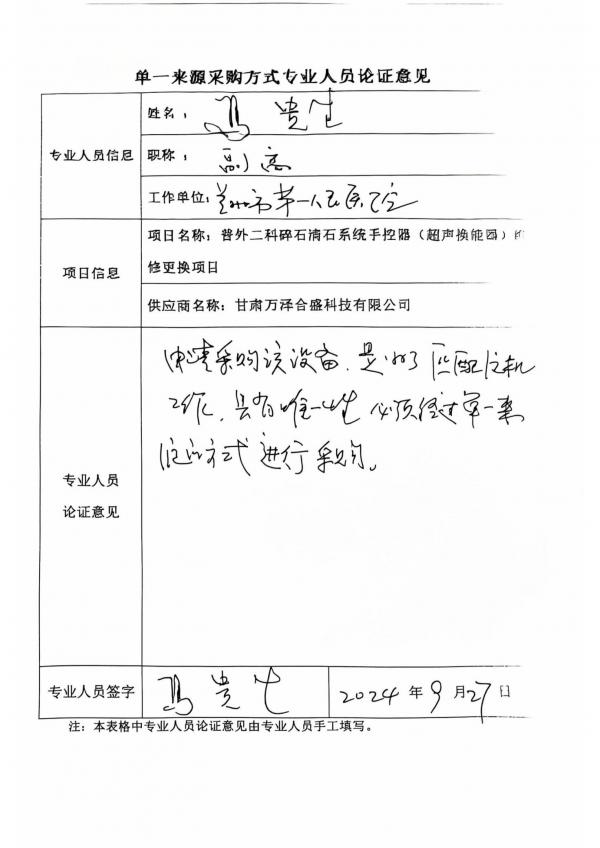 单一来源采购方式专业人员论证意见
专业人员信息
姓名： 冯贵生
职称： 副高
工作单位： 兰州市第一人民医院
项目信息
项目名称：普外二科碎石清石系统手控器（超声换能器）
修更换项目
供应商名称：甘肃万泽合盛科技有限公司
专业人员
论证意见
申请采购该设备，是为了匹配主机
工作，具有唯一性 必须经过单一来
源的方式进行采购。
专业人员签字 冯贵生 2024 年 9 月 27 日
注：本表格中专业人员论证意见由专业人员手工填写。